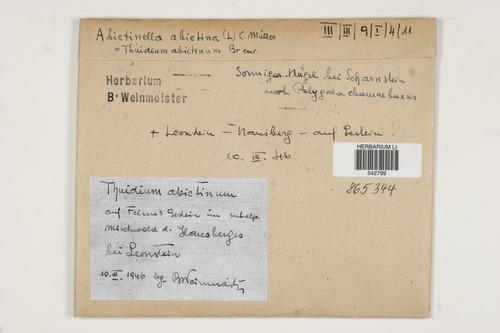 Abietinella abietina (L) C. Müller
= Thuidium abietinum Br eur.
III | III | 9 | I | 4 | 11
Herbarium
B. Weinmeister
Sonniger Hügel bei Scharnstein
nach Polygala chamaebuxus
+ Leonstein – Hausberg – auf Gestein
10. III. 46
HERBARIUM LI
542799
865344
Thuidium abietinum
auf Gestein im subalp.
Mischwald d. Hausberges
bei Leonstein
10. III. 1946 lg. BWeinmeister